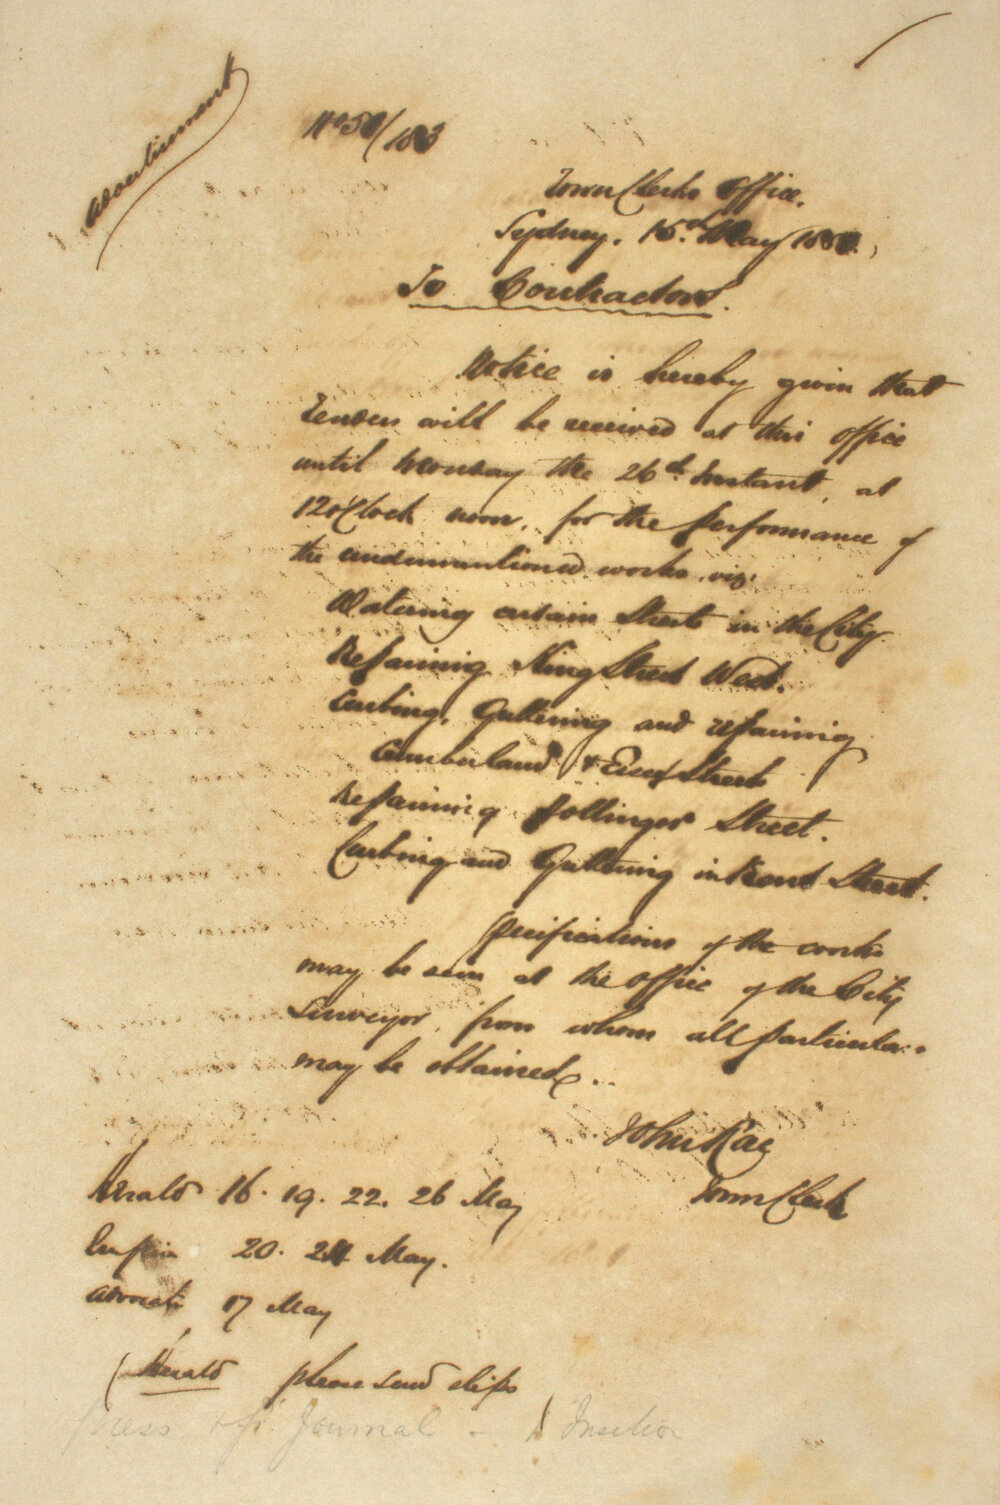 Advertisement
Town Clerks Office.
Sydney, 15th May
To Contractors.
Notice is hereby given that
Tenders will be received at this office
until Monday the 26th Instant, at
12 o'Clock noon, for the performance of
the undermentioned works, viz:
Watering certain Streets in the City
Repairing King Street West.
Curbing, Guttering and repairing
Cumberland & Essex Streets
Repairing Bollinger Street.
Curbing and Guttering in Kent Street.
Specifications of the works
may be seen at the office of the City
Surveyor, from whom all particulars
may be obtained.
John Rae
Town Clerk
Herald 16. 19. 22. 26 May
Empire 20. 24 May.
Advocate 17 May
(Herald please send slips
Press Journal - 1 Insertion